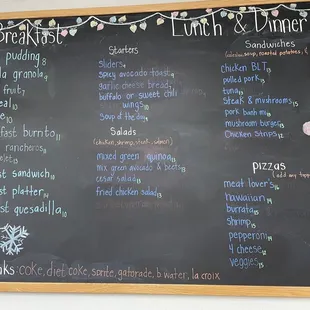 Breakfast
Lunch & Dinner
pudding 8
la granola 9
fruit
fast burrito 11
rancheros 9
st sandwich 10
st platter 14
st quesadilla 10
Starters
Sliders
spicy avocado toast
garlic cheese bread
buffalo or sweet chili
wings 10
soup of the day
Salads
(chicken, shrimp, steak, salmon)
mixed green quinoa
mix green avocado & beets
cesar salad
fried chicken salad
Sandwiches
Chicken BLT
pulled pork
tuna
Steak & mushrooms
pork banh mi
mushroom burger
Chicken Strips 12
pizzas
(add any
meat lover's 16
hawaiian 14
burrata
shrimp
pepperoni
4 cheese
veggies
coke, diet coke, sprite, gatorade, b water, la croix